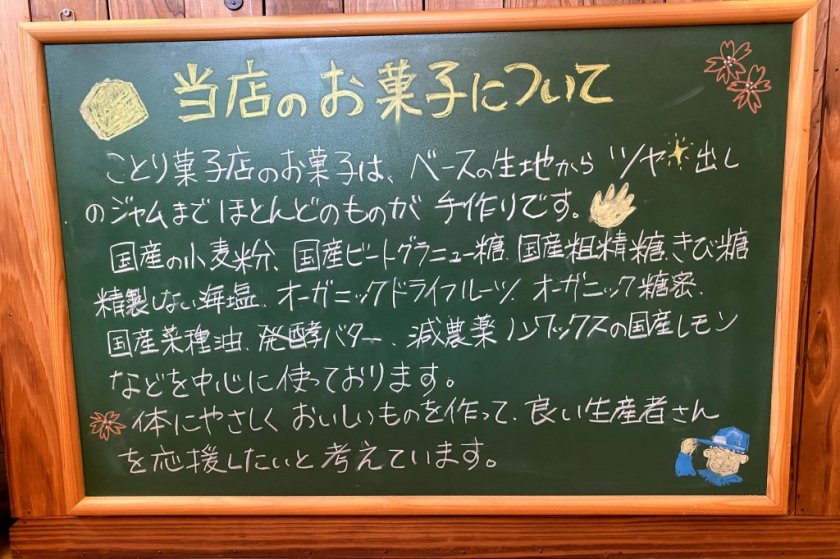 当店のお菓子について
ことり菓子店のお菓子は、ベースの生地からツヤ出し
のジャムまでほとんどのものが手作りです。
国産の小麦粉、国産ビートグラニュー糖、国産粗精糖、きび糖
精製しない海塩、オーガニックドライフルーツ、オーガニック糖密、
国産菜種油、発酵バター、減農薬ノンワックスの国産レモン
などを中心に使っております。
体にやさしくおいしいものを作って、良い生産者さん
を応援したいと考えています。